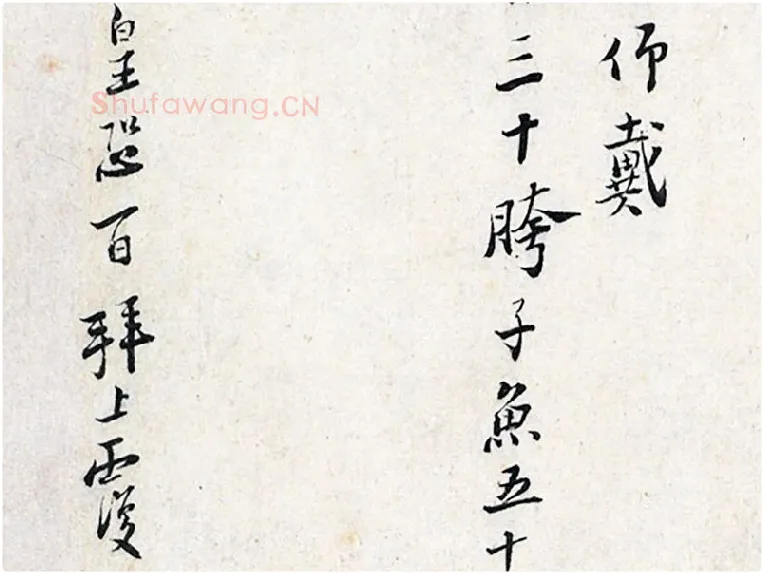 仰戴
三十胯子魚五十
皇恐百拜上覆
Shufawang.CN